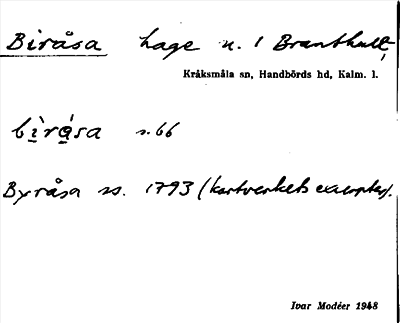 Biråsa hage n. 1 Branthult,
Kråksmåla sn, Handbörds hd, Kalm. l.
bìrása s. 66
Byråsa ss. 1793 (kartverkets excerpter).
Ivar Modéer 1948